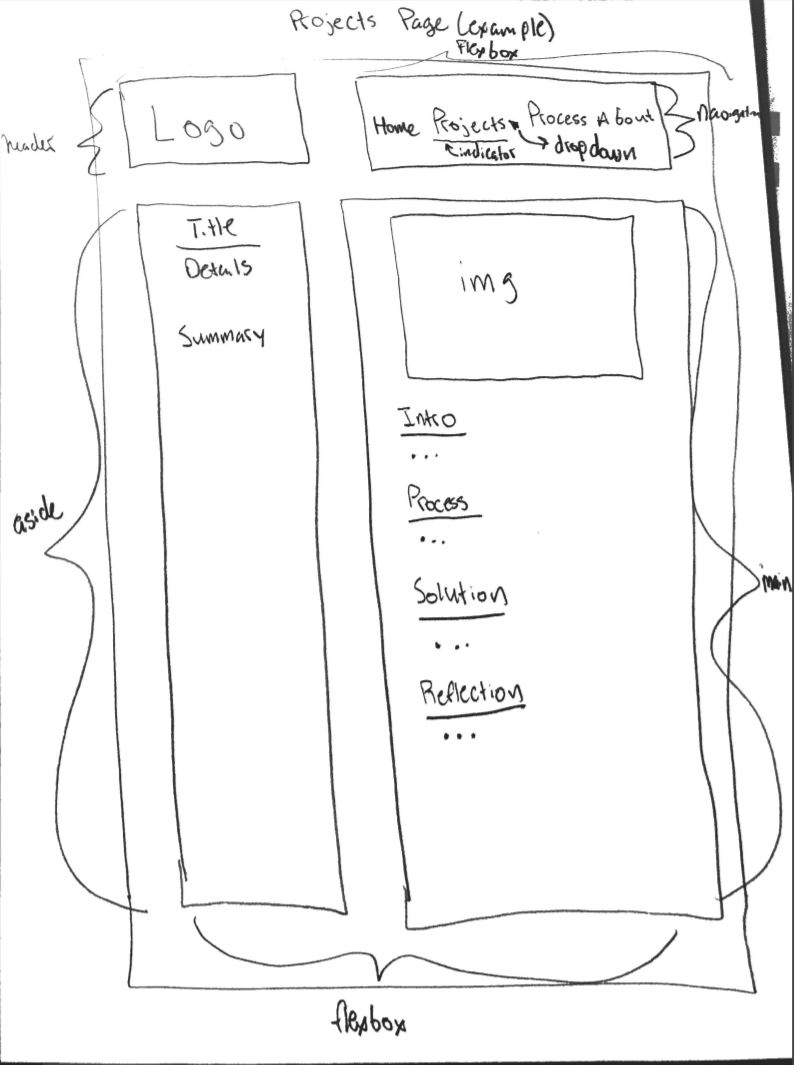 Projects Page (example)
flexbox
header
Logo
Home Projects Process About
indicator
dropdown
Navigation
Title
Details
Summary
img
Intro
...
Process
...
Solution
...
Reflection
...
aside
main
flexbox